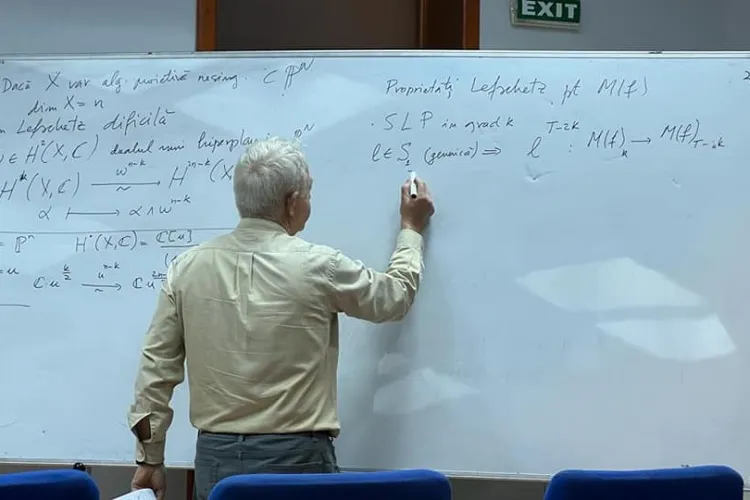 EXIT
Dacă X var. alg. proiectivă nesing. ⊂ ℙᴺ
dim X = n
Lefschetz dificilă
∈ H²(X,ℂ) dualul unui hiperplan
Hᵏ(X,ℂ) —ωⁿ⁻ᵏ→ H²ⁿ⁻ᵏ(X
∼
α ↦ α ∧ ωⁿ⁻ᵏ
= ℙⁿ H˙(X,ℂ) = ℂ[u]
= u
ℂu^{k/2} —uⁿ⁻ᵏ→ ℂu
∼
Proprietăți Lefschetz pt M(f)
· SLP in grad k
ℓ ∈ S₁ (generică) ⇒ ℓ^{T-2k} : M(f)ₖ → M(f)_{T-k}
2